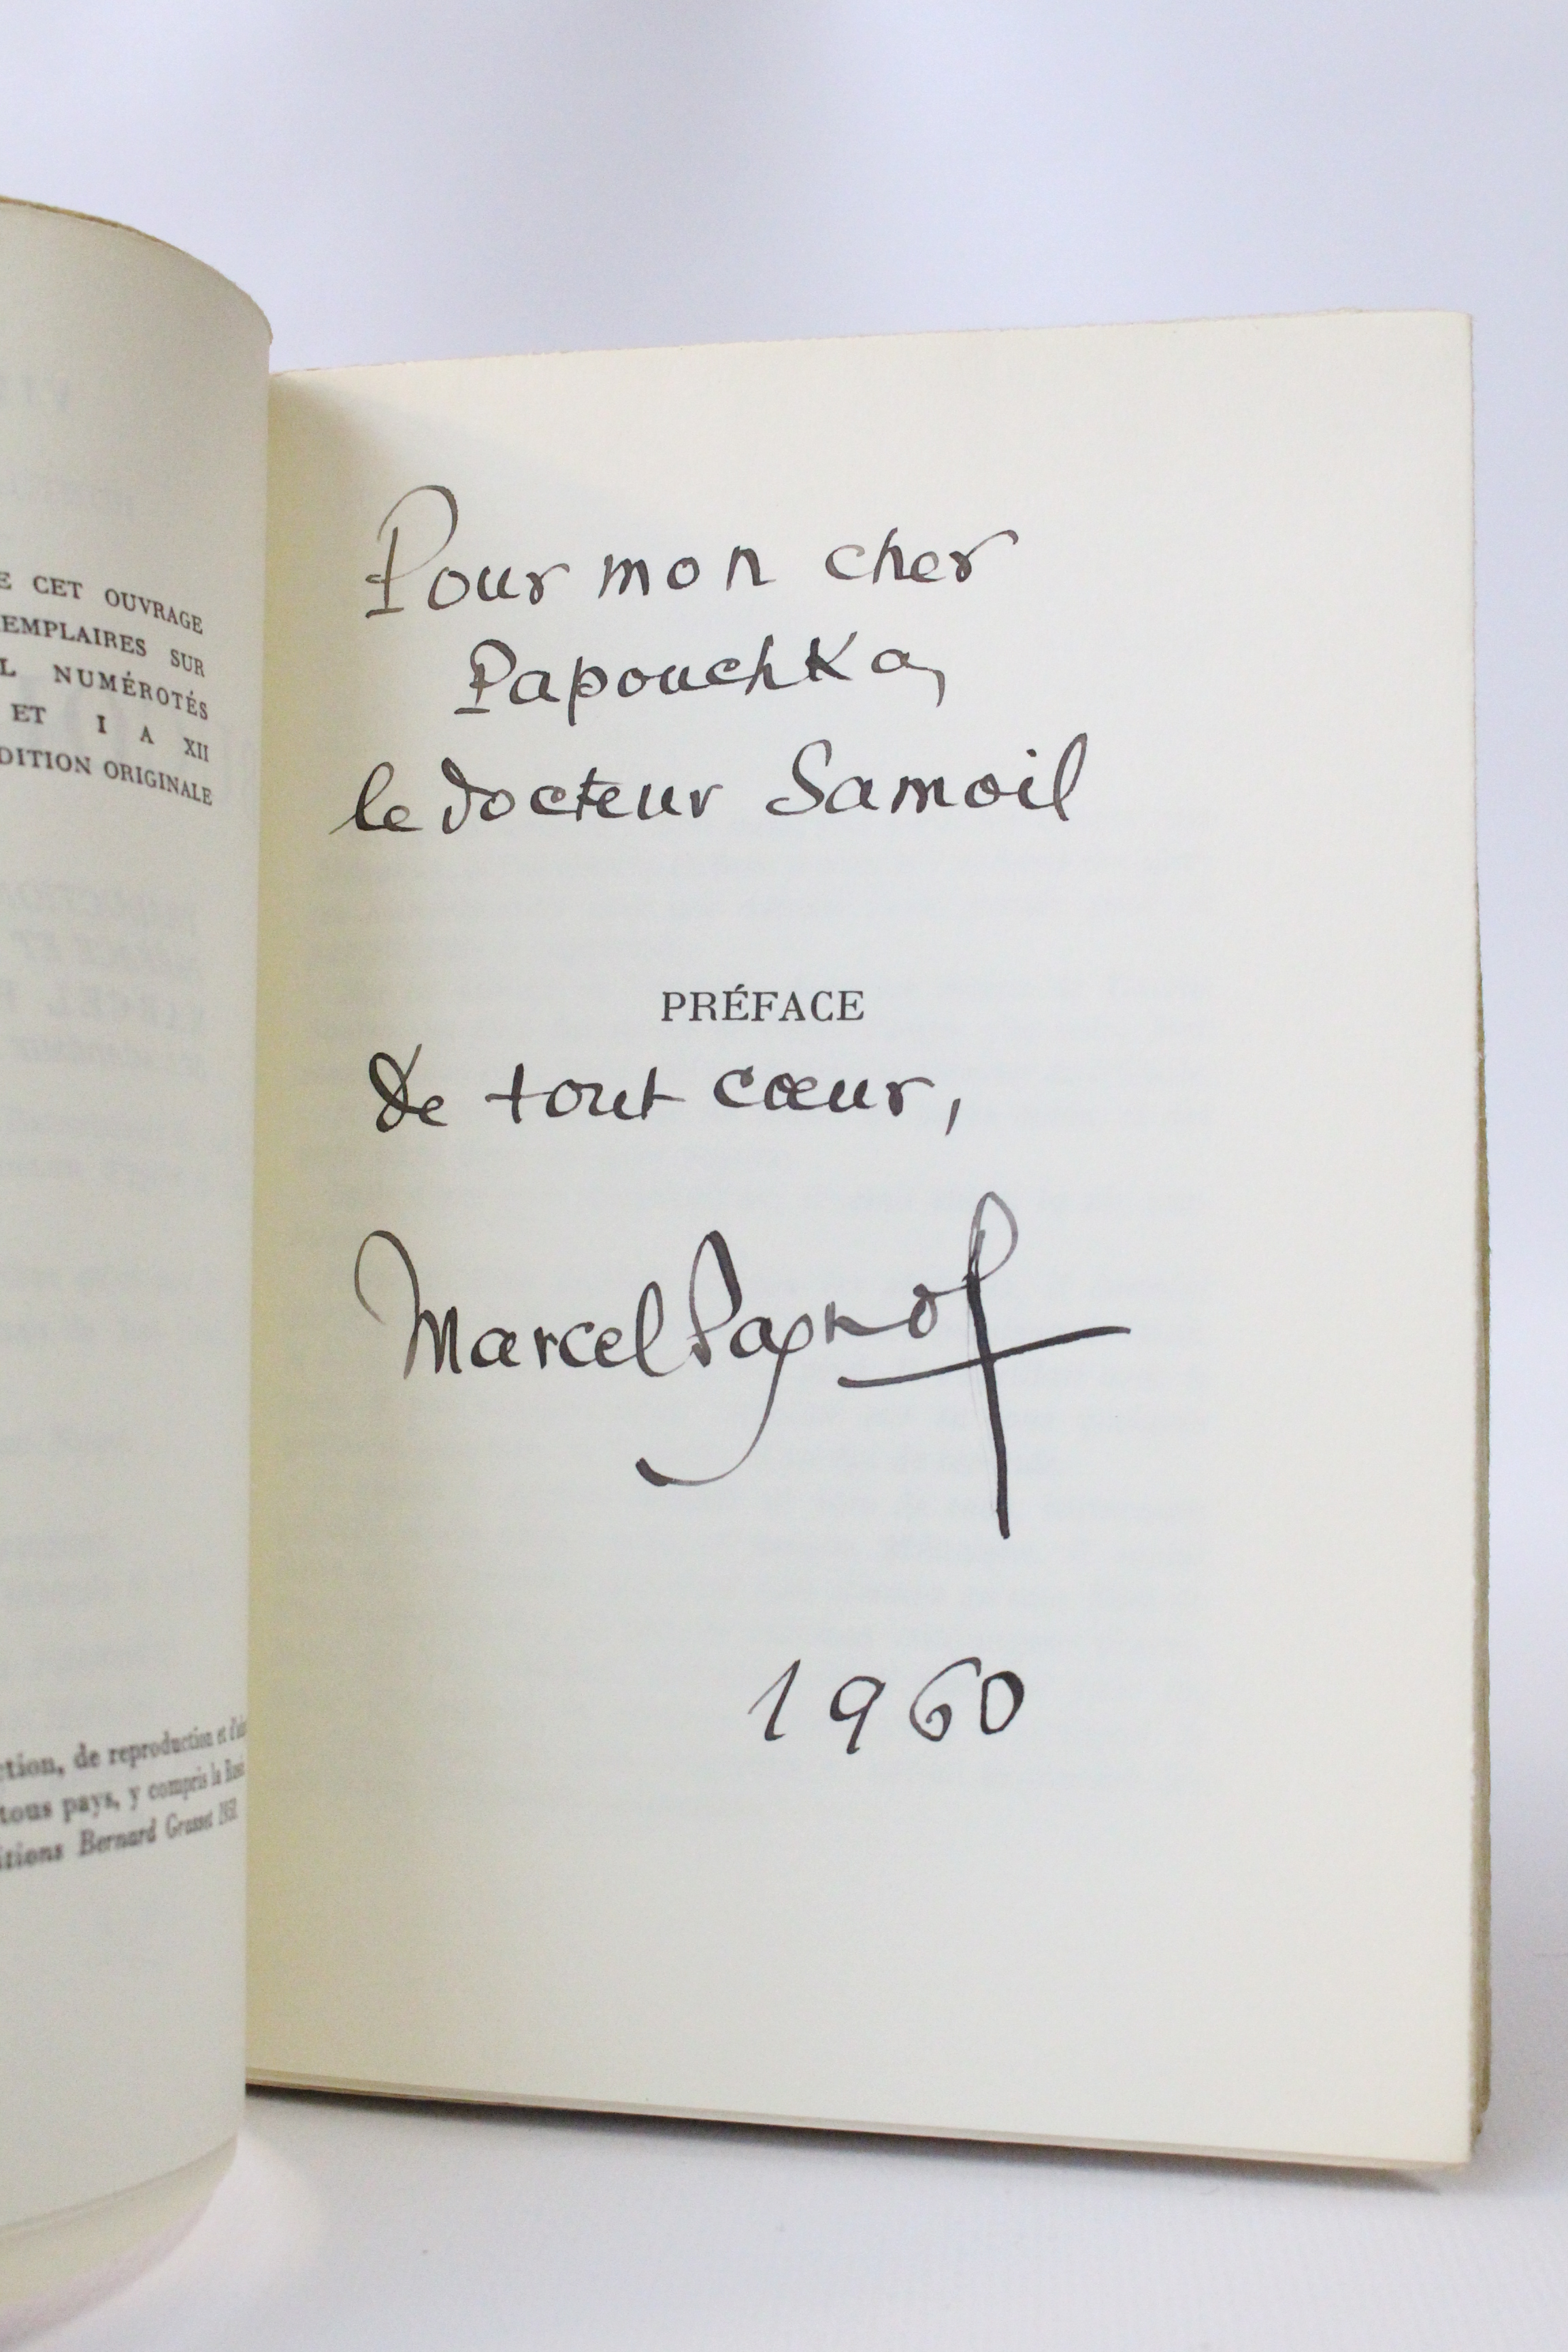 E CET OUVRAGE
EMPLAIRES SUR
L NUMÉROTÉS
ET I A XII
DITION ORIGINALE
ction, de reproduction et d'
tous pays, y compris la
itions Bernard Grasset
Pour mon cher
Papouchka,
le docteur Samoil
PRÉFACE
de tout cœur,
Marcel Pagnol
1960